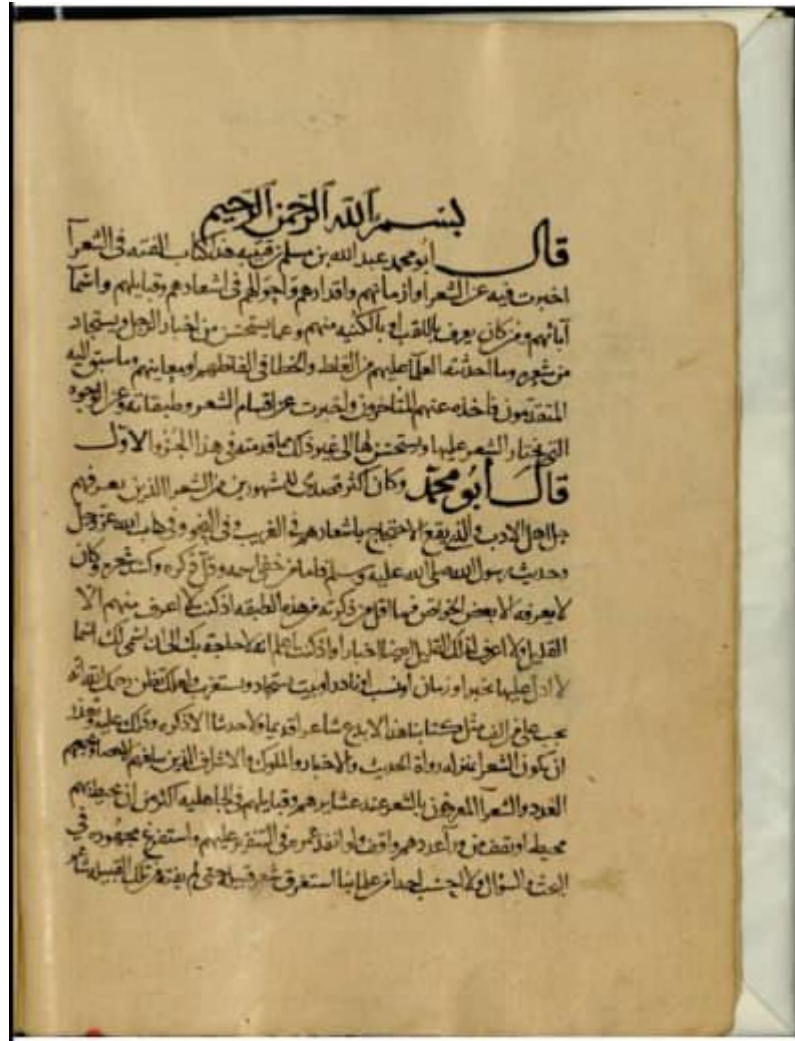 بسم الله الرحمن الرحيم
قال ابو محمد عبد الله بن مسلم بن قتيبه هذا كتاب الفته فى الشعرآ
اخبرت فيه عن الشعرا وازمانهم واقدارهم واحوالهم فى اشعارهم وقبايلهم واسمآ
آبائهم ومن كان يعرف باللقب او بالكنيه منهم وعما يستحسن من اخبار الرجل ويستجاد
من شعره وما اخذته العلمآ عليهم من الغلط والخطا فى الفاظهم او معاينهم وما سبق اليه
المتقدمون فاخذه عنهم المتاخرون واخبرت عن اقسام الشعر وطبقاته وعن الوجوه
التى يختار الشعر عليها ويستحسن لها الى غير ذلك مما قدمته فى هذا الجزو الاول
قال أبو محمد وكان اكثر قصدى للمشهورين من الشعرا الذين يعرفهم
جل اهل الادب والذين يقع الاحتجاج باشعارهم فى الغريب وفى النحو وفى كتاب الله عز وجل
وحديث رسول الله صلى الله عليه وسلم فاما من خفى اسمه وقل ذكره وكسد شعره وكان
لا يعرفه الا بعض الخواص فما اقل من ذكرته من هذه الطبقه اذ كنت لا اعرف منهم الا
القليل ولا اعرف لذلك القليل ايضا اخبارا واذ كنت اعلم انه لا حاجة بك الى ان اسمى لك اسما
لا ادل عليها بخبر او زمان او نسب او نادره او بيت يستجاد ويستغرب ولعلك تظن رحمك الله انه
يجب على من الف مثل كتابنا هذا الا يدع شاعرا قديما ولا حديثا الا ذكره ودلك عليه وتقدر
ان يكون الشعرا بمنزله رواة الحديث والاخبار والملوك والاشراف الذين يبلغهم الاحصا ويجمعهم
العدد والشعرآ المعروفون بالشعر عند عشايرهم وقبايلهم فى الجاهليه اكثر من ان يحيط بهم
محيط او يقف من ورآ عددهم واقف ولو انفد عمره فى التنقير عليهم واستفرغ مجهوده في
البحث والسؤال ولا احسب احدا من علمائنا استغرق شعر قبيلة حتى لم يفته من تلك القبيله شاعر